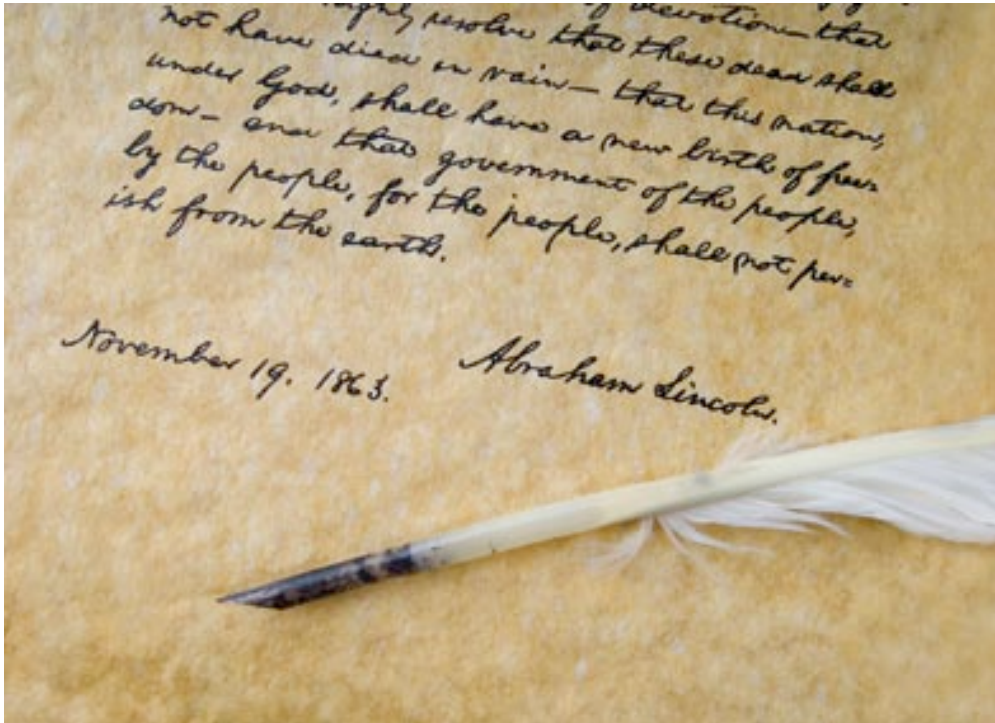 of devotion— that
resolve that these dead shall
not have died in vain— that this nation,
under God, shall have a new birth of free=
dom— and that government of the people,
by the people, for the people, shall not per=
ish from the earth.
November 19. 1863.
Abraham Lincoln.